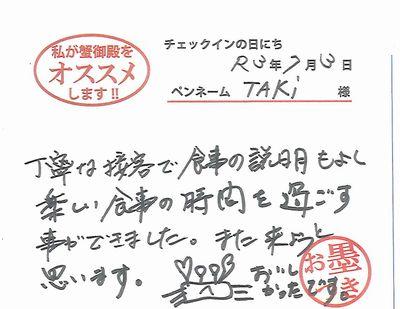 私が蟹御殿を
オススメ
します!!
チェックインの日にち
R3年7月3日
ペンネーム TAKi 様
丁寧な接客で食事の説明もよし
楽しい食事の時間を過ごす
事ができました。また来ようと
思います。
おいし
かったです。
お墨
き